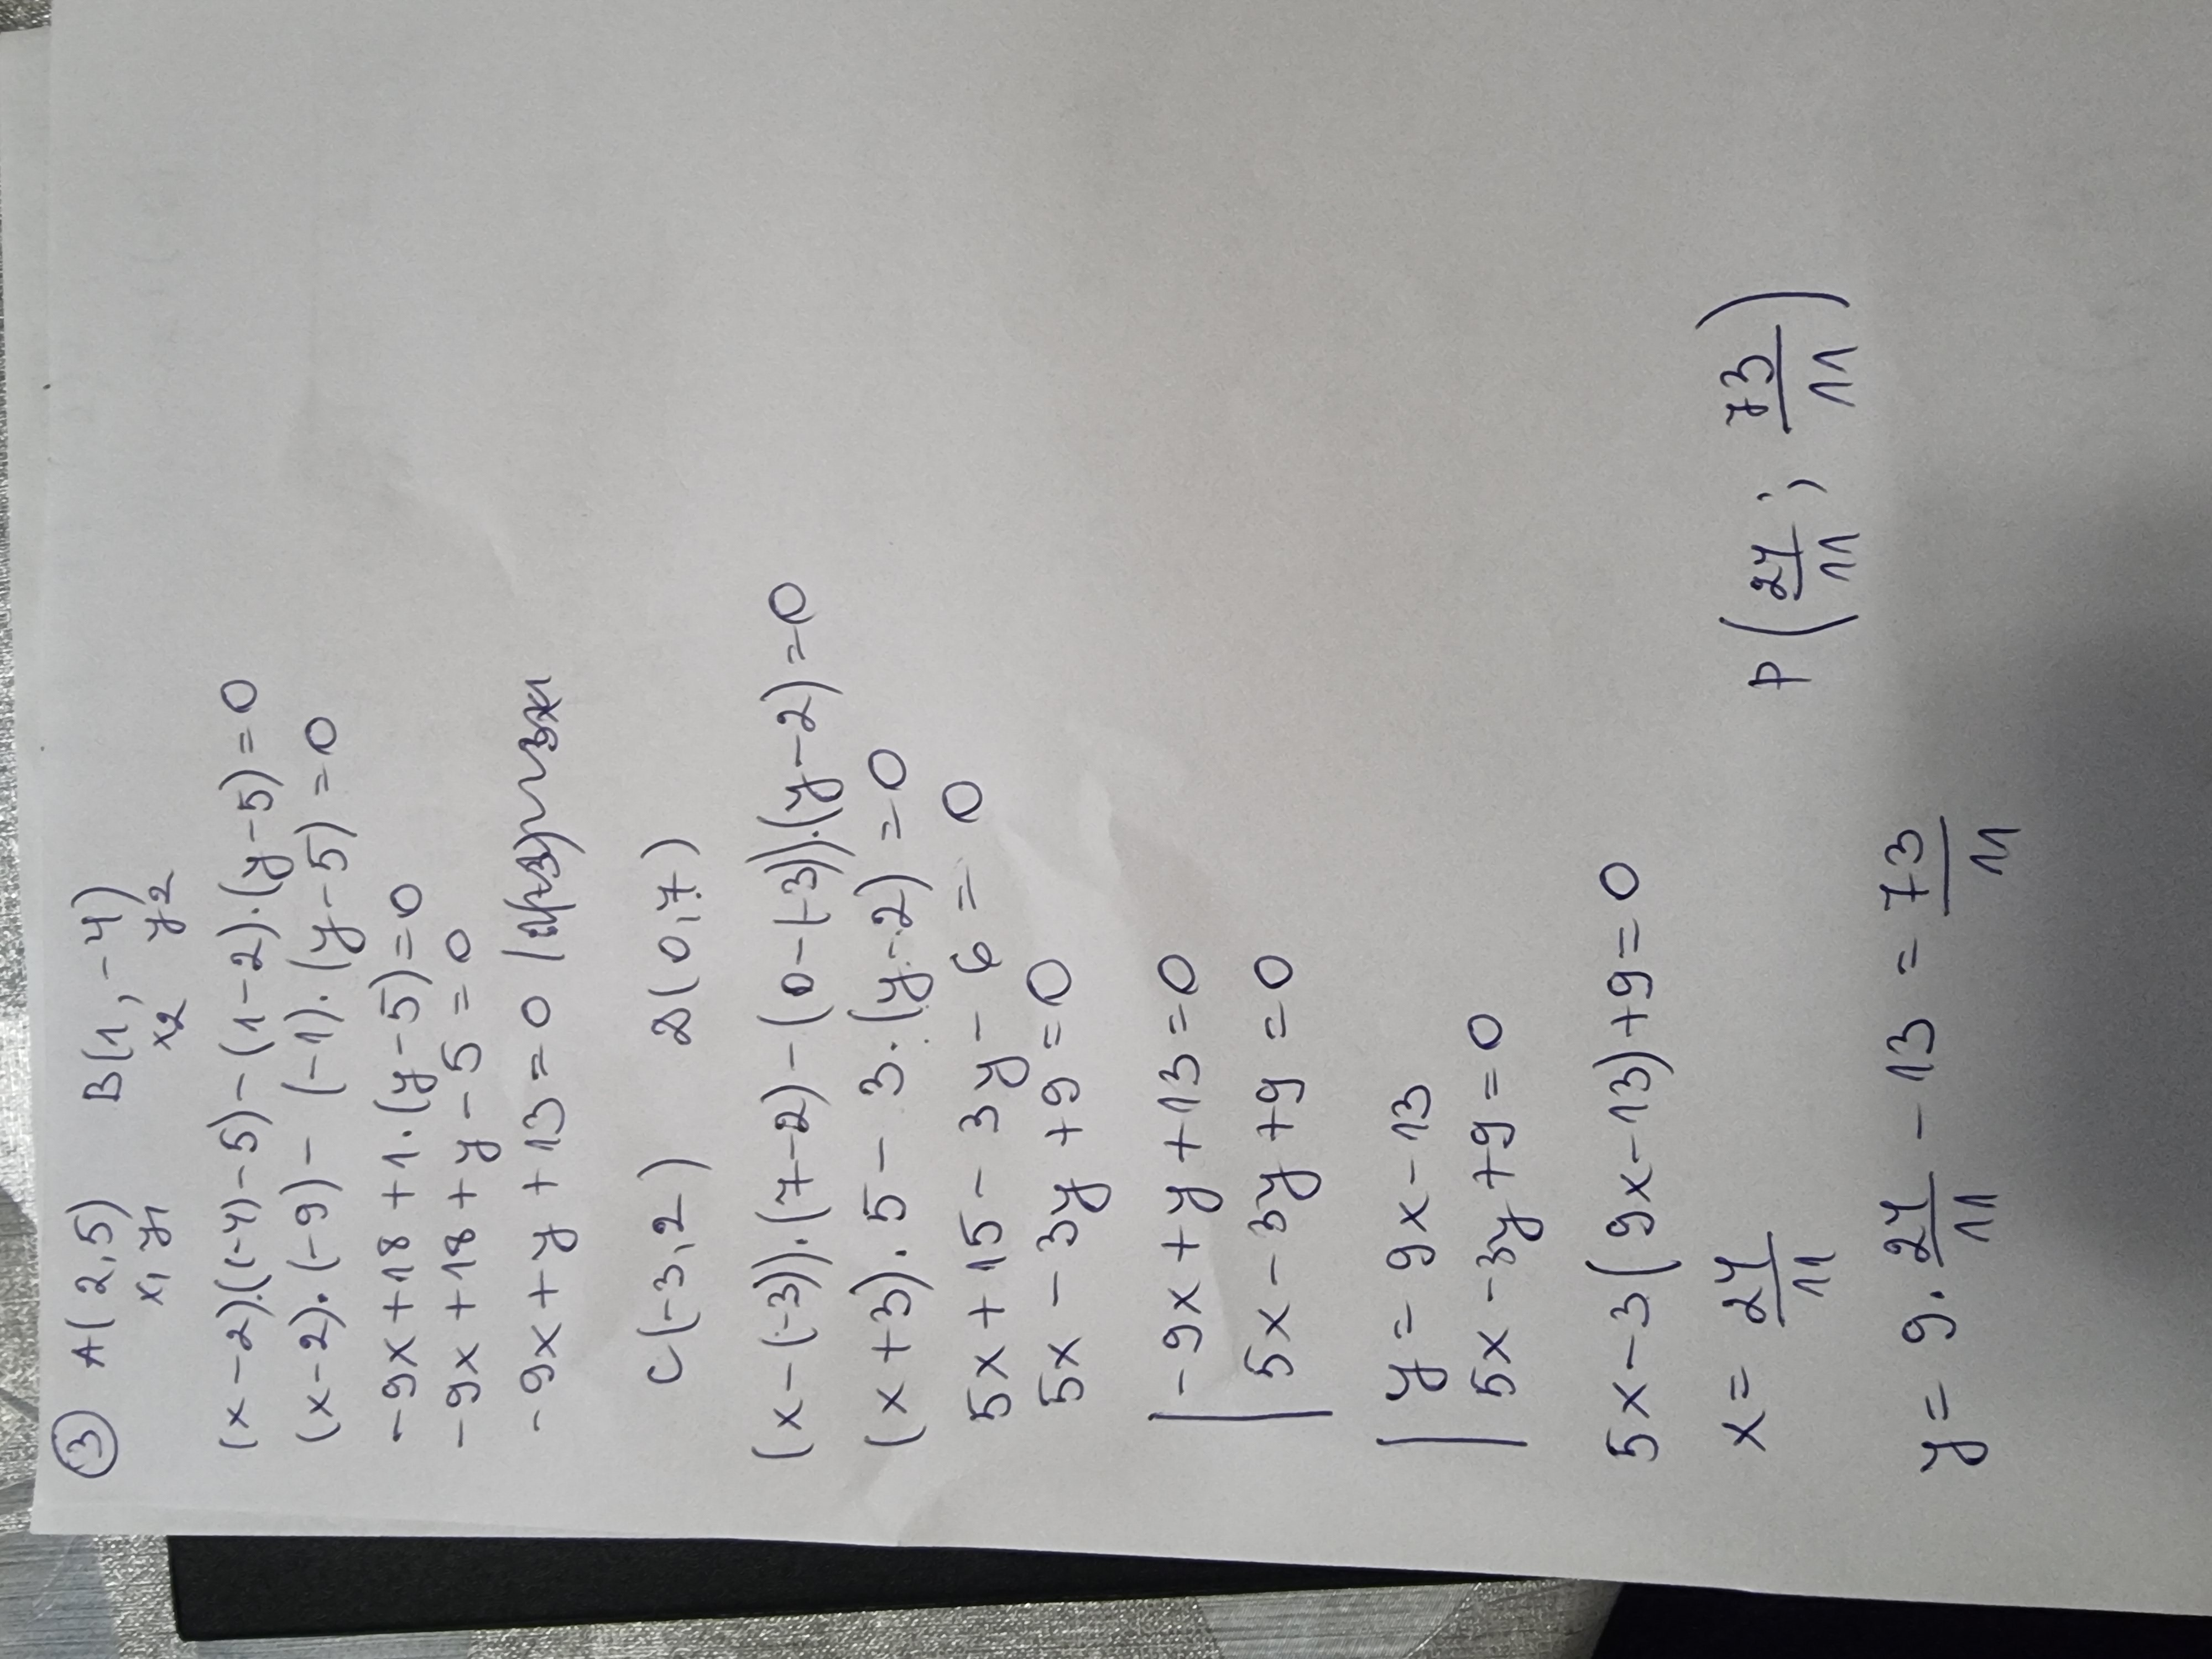 ③ A(2,5) B(1,-4)
x₁ y₁ x₂ y₂
(x-2).((-4)-5)-(1-2).(y-5)=0
(x-2).(-9)-(-1).(y-5)=0
-9x+18+1.(y-5)=0
-9x+18+y-5=0
-9x+y+13=0 |
C(-3,2) D(0,7)
(x-(-3)).(7-2)-(0-(-3)).(y-2)=0
(x+3).5-3.(y-2)=0
5x+15-3y-6=0
5x-3y+9=0
|-9x+y+13=0
|5x-3y+9=0
|y=9x-13
|5x-3y+9=0
5x-3(9x-13)+9=0
x=24/11 P(24/11; 73/11)
y=9.24/11-13=73/11